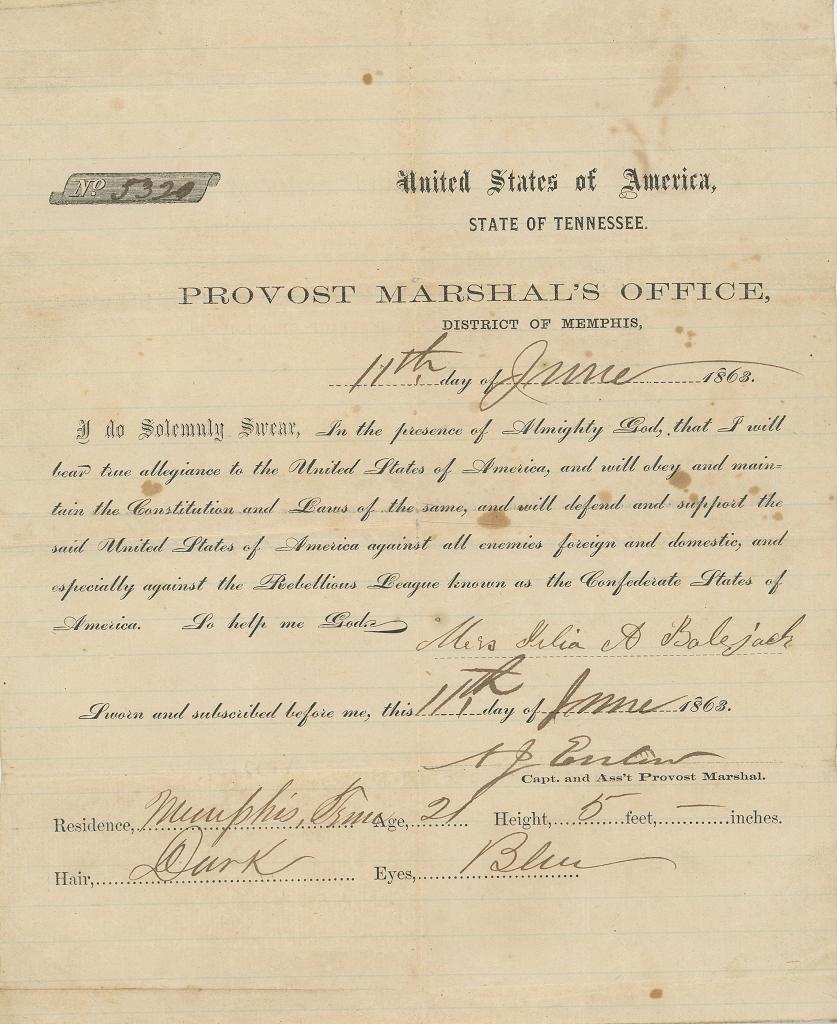 No 5320
United States of America,
STATE OF TENNESSEE.
PROVOST MARSHAL'S OFFICE,
DISTRICT OF MEMPHIS,
11th day of June 1863.
I do Solemnly Swear, In the presence of Almighty God, that I will
bear true allegiance to the United States of America, and will obey and main-
tain the Constitution and Laws of the same, and will defend and support the
said United States of America against all enemies foreign and domestic, and
especially against the Rebellious League known as the Confederate States of
America. So help me God.
Mrs A
Sworn and subscribed before me, this 11th day of June 1863.
Capt. and Ass't Provost Marshal.
Residence, Memphis, Tenn Age, 21 Height, 5 feet, — inches.
Hair, Dark Eyes, Blue